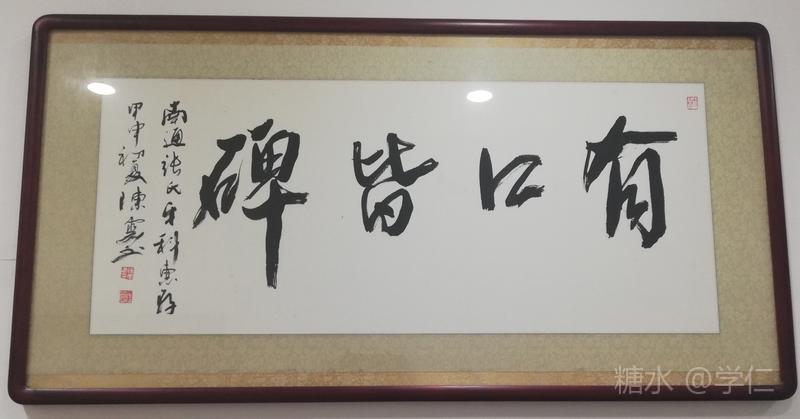 有口皆碑
南通張氏牙科惠存
甲申初夏陳云书
糖水 @学仁